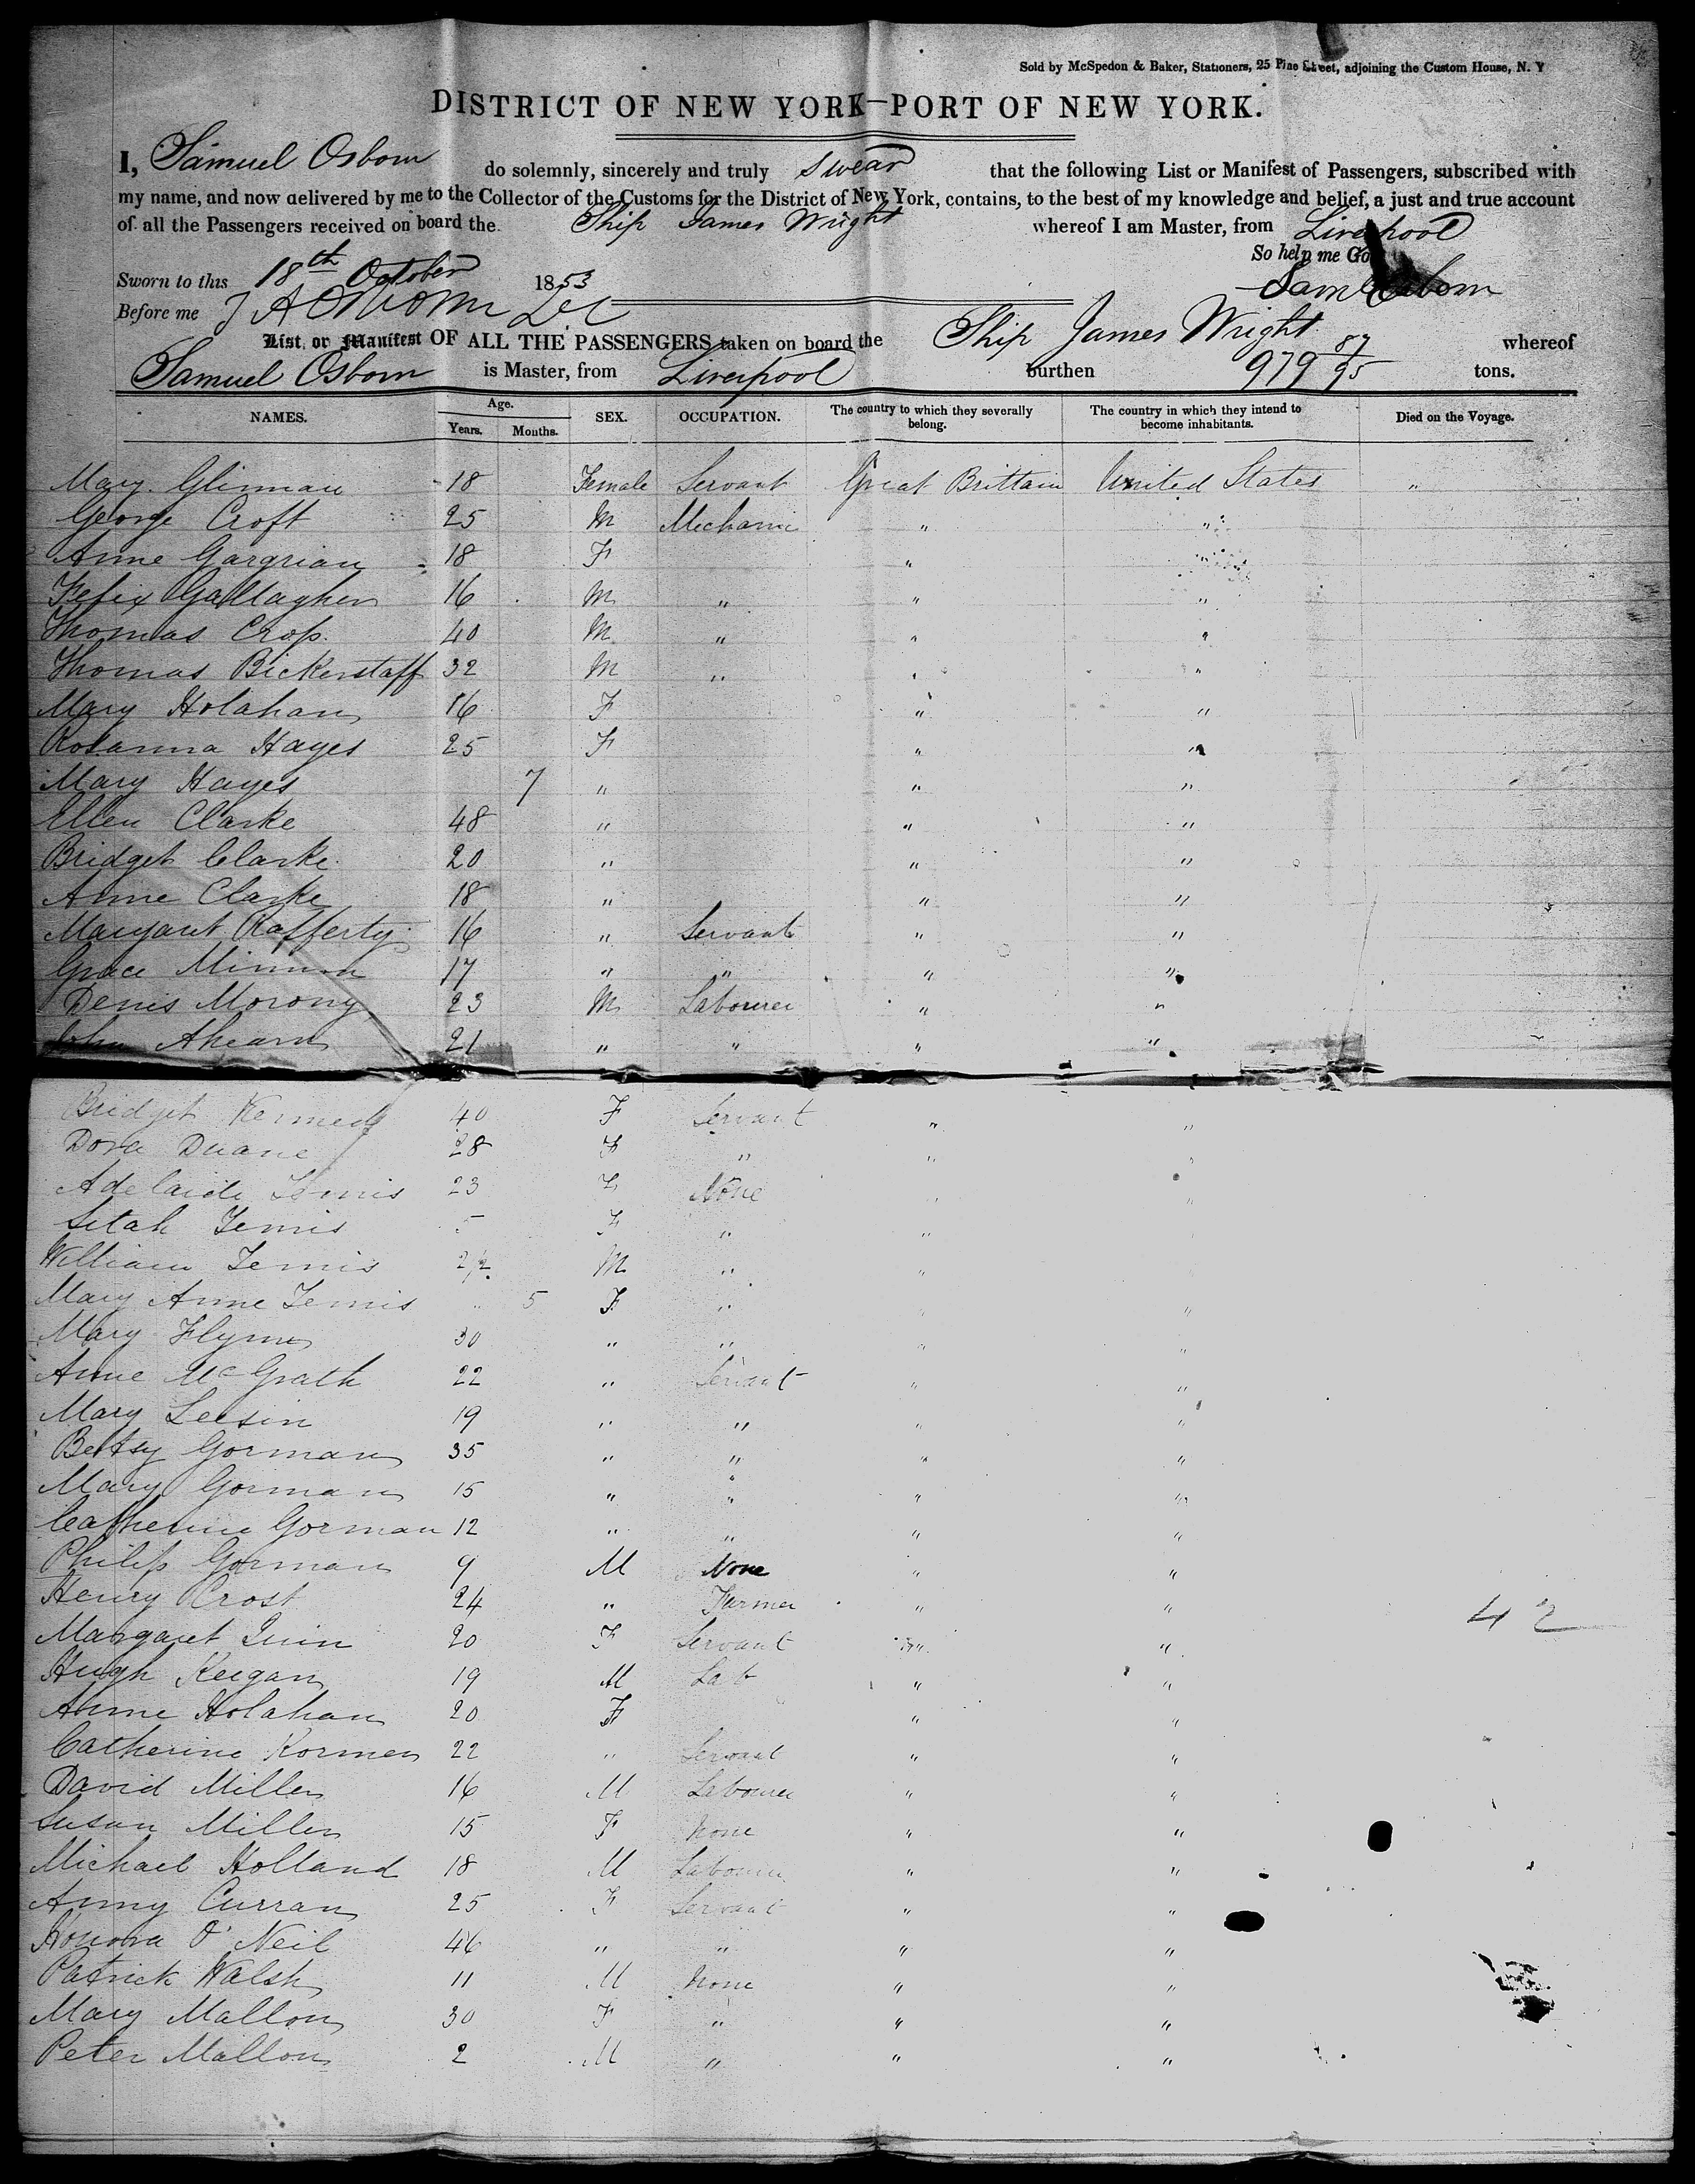 Sold by McSpedon & Baker, Stationers, 25 Pine Street, adjoining the Custom House, N. Y
DISTRICT OF NEW YORK—PORT OF NEW YORK.
I, Samuel Osborn do solemnly, sincerely and truly swear that the following List or Manifest of Passengers, subscribed with
my name, and now delivered by me to the Collector of the Customs for the District of New York, contains, to the best of my knowledge and belief, a just and true account
of all the Passengers received on board the Ship James Wright whereof I am Master, from Liverpool
So help me God
Sworn to this 18th October 1853 Saml Osborn
Before me
List or Manifest OF ALL THE PASSENGERS taken on board the Ship James Wright whereof
Samuel Osborn is Master, from Liverpool burthen 979 87/95 tons.
NAMES. Age. Years. Months. SEX. OCCUPATION. The country to which they severally belong. The country in which they intend to become inhabitants. Died on the Voyage.
Mary Glinman 18 Female Servant Great Brittain United States "
George Croft 25 M Mechanic " "
Anne Gargrian 18 F " "
Felix Gallagher 16 M " " "
Thomas Crop. 40 M " " "
Thomas Bickerstaff 32 M " " "
Mary Holahan 16 F " "
Rosanna Hayes 25 F " "
Mary Hayes 7 " " "
Ellen Clarke 48 " " "
Bridget Clarke 20 " " "
Anne Clarke 18 " " "
Margaret Rafferty 16 " Servant " "
Grace 17 " " " "
Denis Morony 23 M Labourer " "
John Ahearn 21 " " " "
Bridget Kennedy 40 F Servant " "
Dora Duane 28 F " " "
Adelaide 23 F None " "
5 F " "
William 2½ M " "
Mary Anne 5 F " " "
Mary Flynn 30 " " " "
Anne McGrath 22 " Servant " "
Mary Leesin 19 " " " "
Betsy Gorman 35 " " " "
Mary Gorman 15 " " " "
Catherine Gorman 12 " " " "
Philip Gorman 9 M None " "
Henry Crost 24 " Farmer " " 42
Margaret Quin 20 F Servant " "
Hugh Keegan 19 M Lab " "
Anne Holahan 20 F " "
Catherine Kormen 22 " Servant " "
David Miller 16 M Labourer " "
Susan Miller 15 F None " "
Michael Holland 18 M Labourer " "
Anny Curran 25 F Servant " "
Honora O'Neil 46 " " " "
Patrick Walsh 11 M None " "
Mary Mallon 30 F " " "
Peter Mallon 2 M " " "